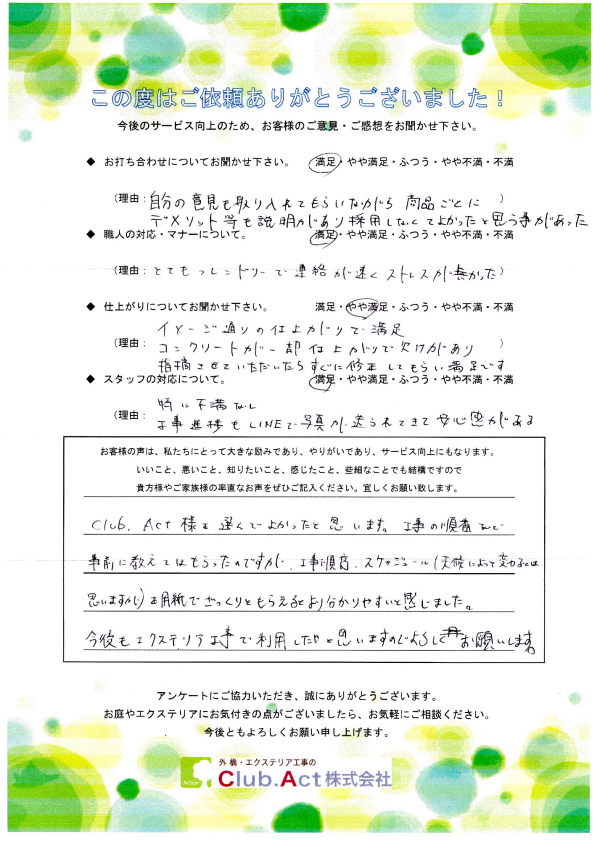 この度はご依頼ありがとうございました！
今後のサービス向上のため、お客様のご意見・ご感想をお聞かせ下さい。
◆ お打ち合わせについてお聞かせ下さい。 満足・やや満足・ふつう・やや不満・不満
(理由: 自分の意見も取り入れてもらいながら 商品ごとに )
デメリット等も説明があり採用しなくてよかったと思う事があった
◆ 職人の対応・マナーについて。 満足・やや満足・ふつう・やや不満・不満
(理由: とてもフレンドリーで連絡が速くストレスが無かった )
◆ 仕上がりについてお聞かせ下さい。 満足・やや満足・ふつう・やや不満・不満
イメージ通りの仕上がりで満足
(理由: コンクリートが一部仕上がりで欠けがあり )
指摘させていただいたらすぐに修正してもらい満足です
◆ スタッフの対応について。 満足・やや満足・ふつう・やや不満・不満
特に不満なし
(理由: 工事進捗もLINEで写真が送られてきて安心感がある
お客様の声は、私たちにとって大きな励みであり、やりがいであり、サービス向上にもなります。
いいこと、悪いこと、知りたいこと、感じたこと、些細なことでも結構ですので
貴方様やご家族様の率直なお声をぜひご記入ください。宜しくお願い致します。
Club. Act 様を選んでよかったと思います。工事の順番など
事前に教えてはもらったのですが、工事順序、スケジュール(天候によって変わるとは
思いますが)を用紙でざっくりともらえるとより分かりやすいと感じました。
今後もエクステリア工事で利用したいと思いますのでよろしくお願いします。
アンケートにご協力いただき、誠にありがとうございます。
お庭やエクステリアにお気付きの点がございましたら、お気軽にご相談ください。
今後ともよろしくお願い申し上げます。
外構・エクステリア工事の
Club.Act株式会社